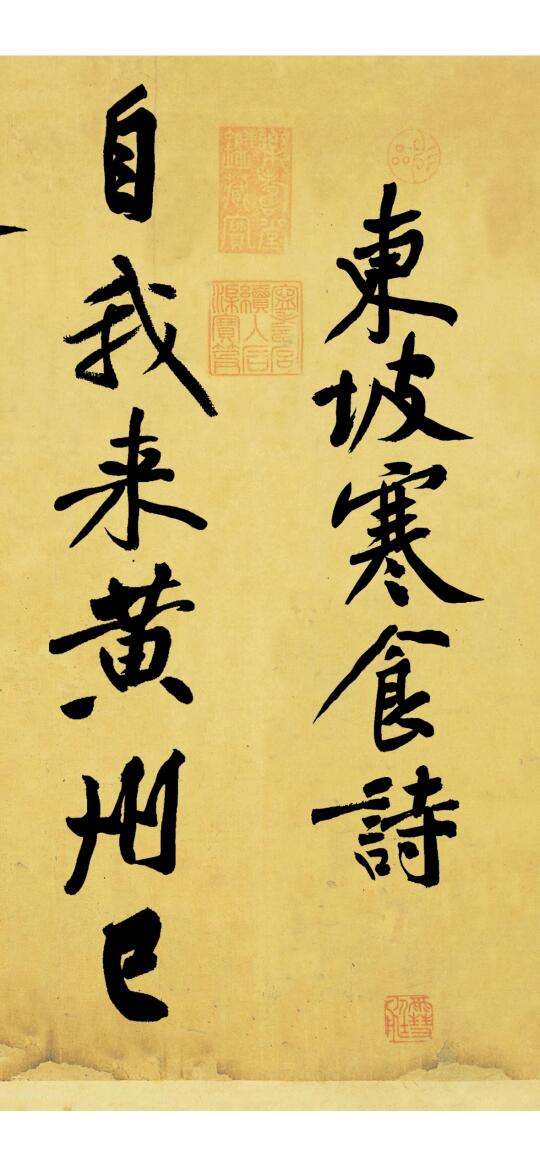 東坡寒食詩
自我来黄州已